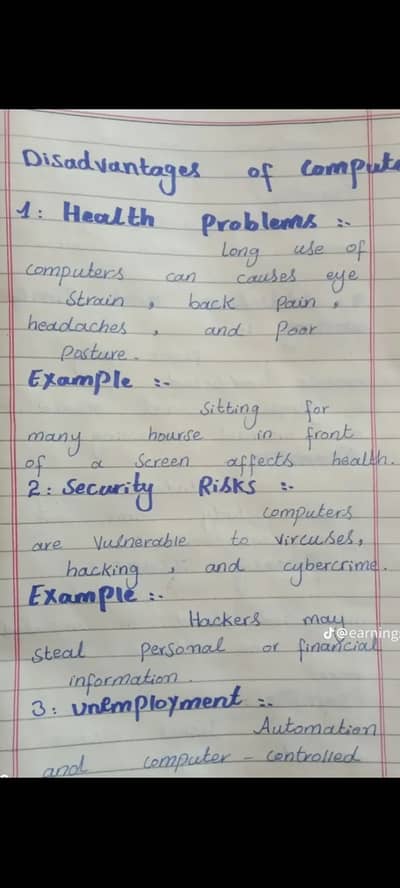 Disadvantages of Compute
1: Health Problems :-
Long use of
computers can causes eye
Strain, back Pain,
headaches, and Poor
Posture.
Example :-
Sitting for
many hourse in front
of a Screen affects health.
2: Security Risks :-
computers
are Vulnerable to vircuses,
hacking, and cybercrime.
Example :-
Hackers may
@earning
steal personal or financial
information.
3: Unemployment :-
Automation
and computer - controlled